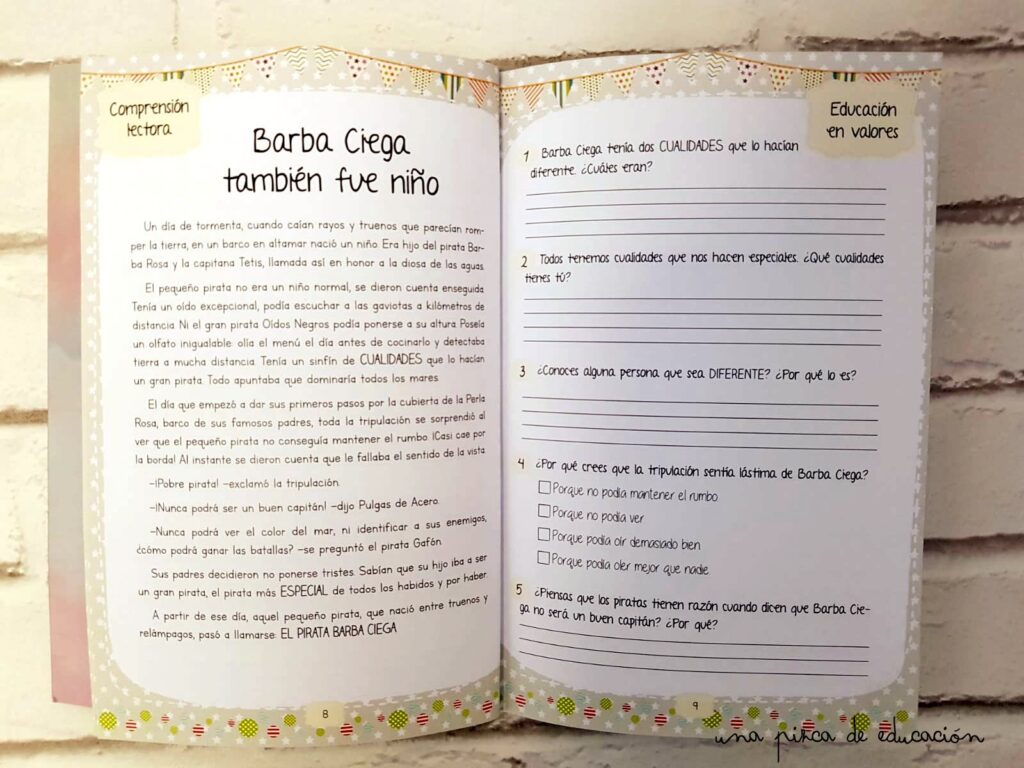 Comprensión
lectora
Barba Ciega
también fue niño
Un día de tormenta, cuando caían rayos y truenos que parecían rom-
per la tierra, en un barco en altamar nació un niño. Era hijo del pirata Bar-
ba Rosa y la capitana Tetis, llamada así en honor a la diosa de las aguas.
El pequeño pirata no era un niño normal, se dieron cuenta enseguida.
Tenía un oído excepcional, podía escuchar a las gaviotas a kilómetros de
distancia. Ni el gran pirata Oídos Negros podía ponerse a su altura. Poseía
un olfato inigualable: olía el menú el día antes de cocinarlo y detectaba
tierra a mucha distancia. Tenía un sinfín de CUALIDADES que lo hacían
un gran pirata. Todo apuntaba que dominaría todos los mares.
El día que empezó a dar sus primeros pasos por la cubierta de la Perla
Rosa, barco de sus famosos padres, toda la tripulación se sorprendió al
ver que el pequeño pirata no conseguía mantener el rumbo. ¡Casi cae por
la borda! Al instante se dieron cuenta que le fallaba el sentido de la vista.
–¡Pobre pirata! –exclamó la tripulación.
–¡Nunca podrá ser un buen capitán! –dijo Pulgas de Acero.
–Nunca podrá ver el color del mar, ni identificar a sus enemigos,
¿cómo podrá ganar las batallas? –se preguntó el pirata Gafón.
Sus padres decidieron no ponerse tristes. Sabían que su hijo iba a ser
un gran pirata, el pirata más ESPECIAL de todos los habidos y por haber.
A partir de ese día, aquel pequeño pirata, que nació entre truenos y
relámpagos, pasó a llamarse: EL PIRATA BARBA CIEGA
8
Educación
en valores
1 Barba Ciega tenía dos CUALIDADES que lo hacían
diferente. ¿Cuáles eran?
2 Todos tenemos cualidades que nos hacen especiales. ¿Qué cualidades
tienes tú?
3 ¿Conoces alguna persona que sea DIFERENTE? ¿Por qué lo es?
4 ¿Por qué crees que la tripulación sentía lástima de Barba Ciega?
Porque no podía mantener el rumbo
Porque no podía ver
Porque podía oír demasiado bien
Porque podía oler mejor que nadie
5 ¿Piensas que los piratas tienen razón cuando dicen que Barba Cie-
ga no será un buen capitán? ¿Por qué?
9
una pizca de educación